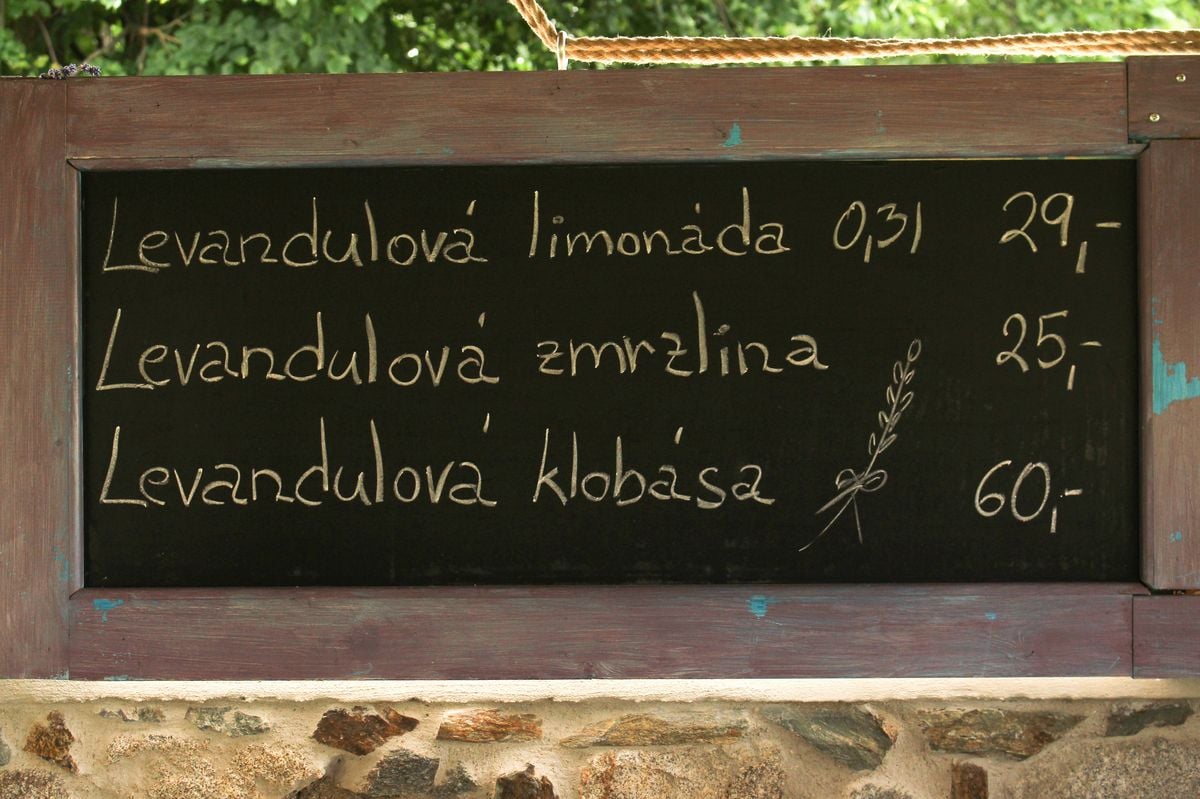 Levandulová limonáda 0,3l 29,-
Levandulová zmrzlina 25,-
Levandulová klobása 60,-